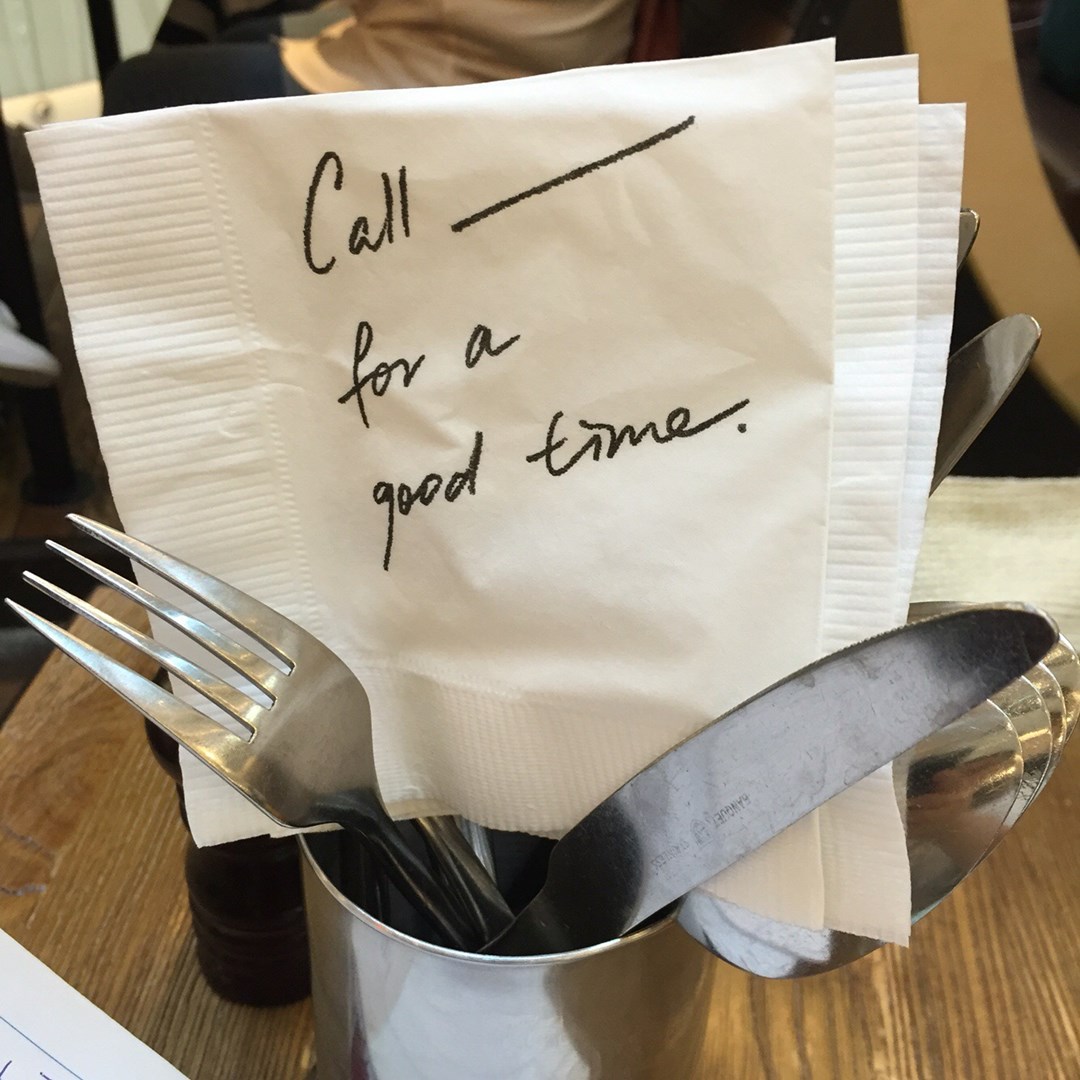 Call ——
for a
good time.
BANQUET